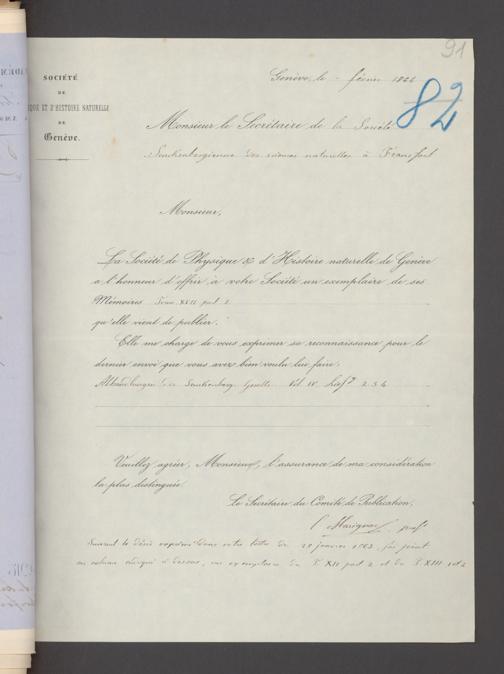 91
SOCIÉTÉ
DE
IQUE ET D'HISTOIRE NATURELLE
DE
Genève.
Genève, le - février 186
82
Monsieur le Secrétaire de la Société
Senckenbergienne des sciences naturelles à Francfort
Monsieur,
La Société de Physique & d'Histoire naturelle de Genève
a l'honneur d'offrir à votre Société un exemplaire de ses
Mémoires Tome XVII part 2
qu'elle vient de publier.
Elle me charge de vous exprimer sa reconnaissance pour le
dernier envoi que vous avez bien voulu lui faire.
Abhandlungen der Senckenberg Gesells. Vol IV Heft 2.3.4
Veuillez agréer, Monsieur, l'assurance de ma considération
la plus distinguée
Le Secrétaire du Comité de Publication,
C. Marignac prof
Suivant le désir exprimé dans votre lettre du 29 janvier 1863, j'ai joint
au volume indiqué ci dessus, un exemplaire du T. XII part 2 et du T. XIII 1 et 2